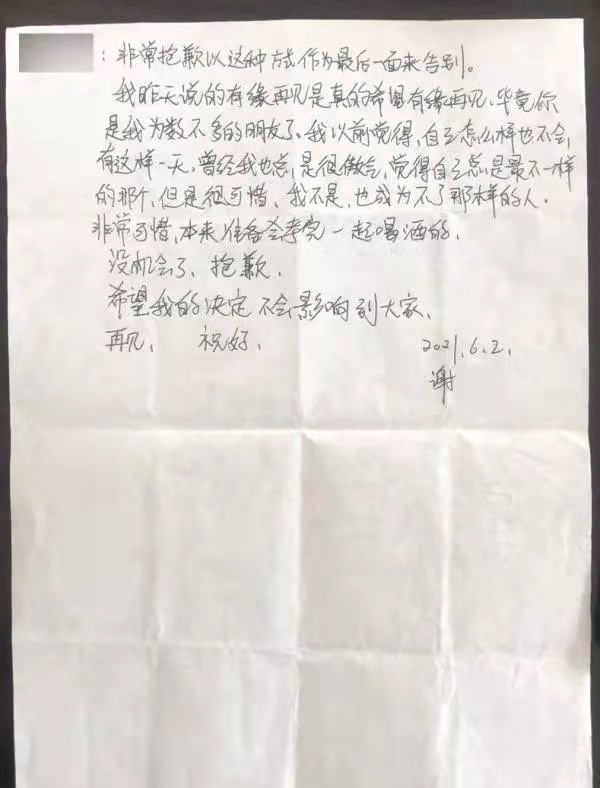 ：非常抱歉以这种方式作为最后一面来告别。
我昨天说的有缘再见是真的希望有缘再见、毕竟你
是我为数不多的朋友了、我以前觉得,自己怎么样也不会,
有这样一天,曾经我也总是很傲气,觉得自己总是最不一样
的那个,但是很可惜、我不是、也成为不了那样的人.
非常可惜,本来准备会考完一起喝酒的,
没机会了、抱歉、
希望我的决定不会影响到大家、
再见、 祝好、 2021.6.2.
谢